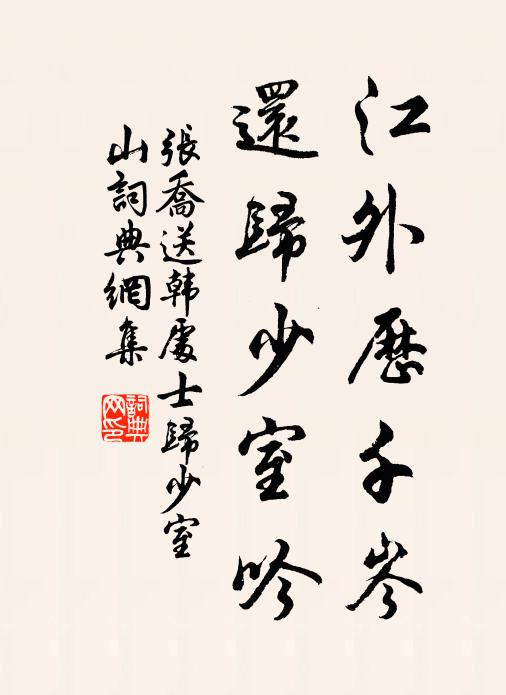 江外歷千岑
還歸少室吟
張喬送韩處士歸少室
山詞典網集
詞典
网印